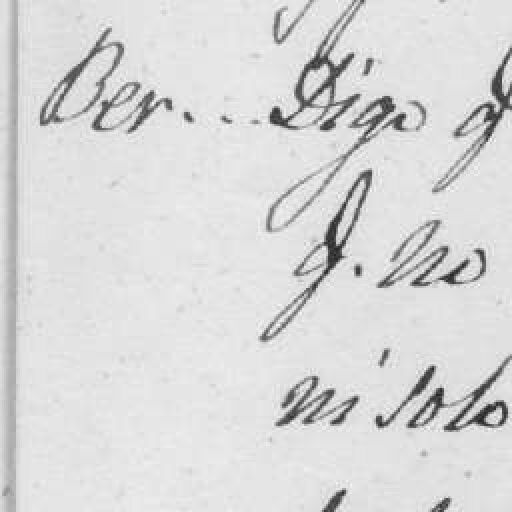 Ber... Digo q
q. no
ni solo